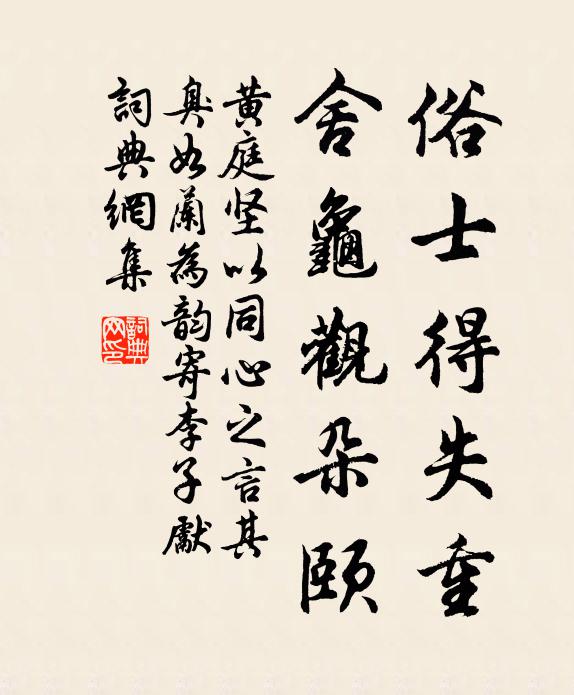 俗士得失重
舍龜觀朵頤
黃庭堅以同心之言其
臭如蘭為韵寄李子獻
詞典網集
詞典网印